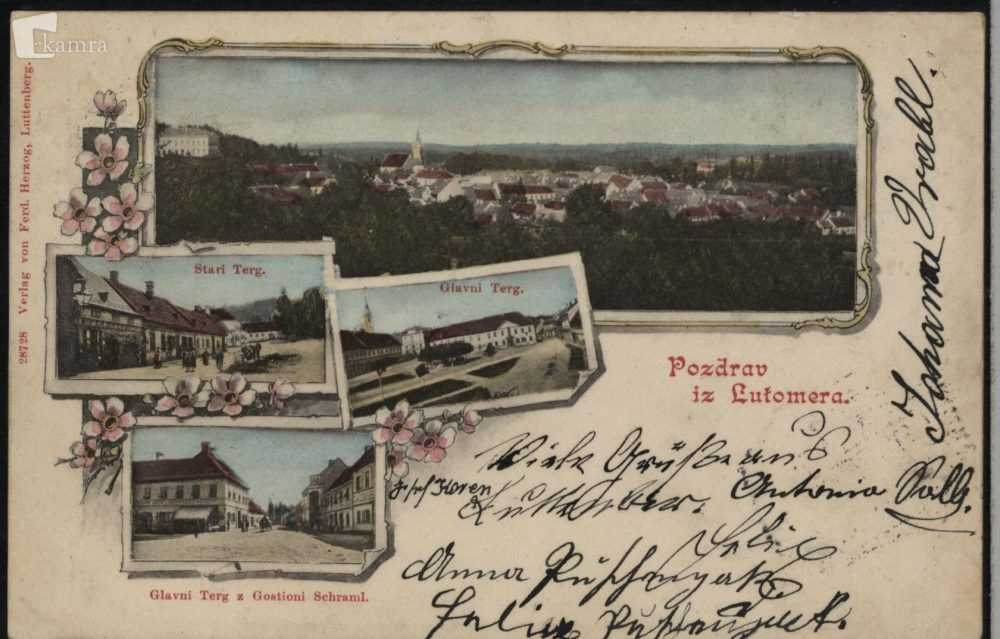 kamra
28728 Verlag von Ferd. Herzog, Luttenberg.
Stari Terg.
Glavni Terg.
Glavni Terg z Gostioni Schraml.
Pozdrav
iz Lutomera.
Viele Grüße aus
Luttenberg.
Josef
Antonia
Anna
Felix
Felix
Johanna